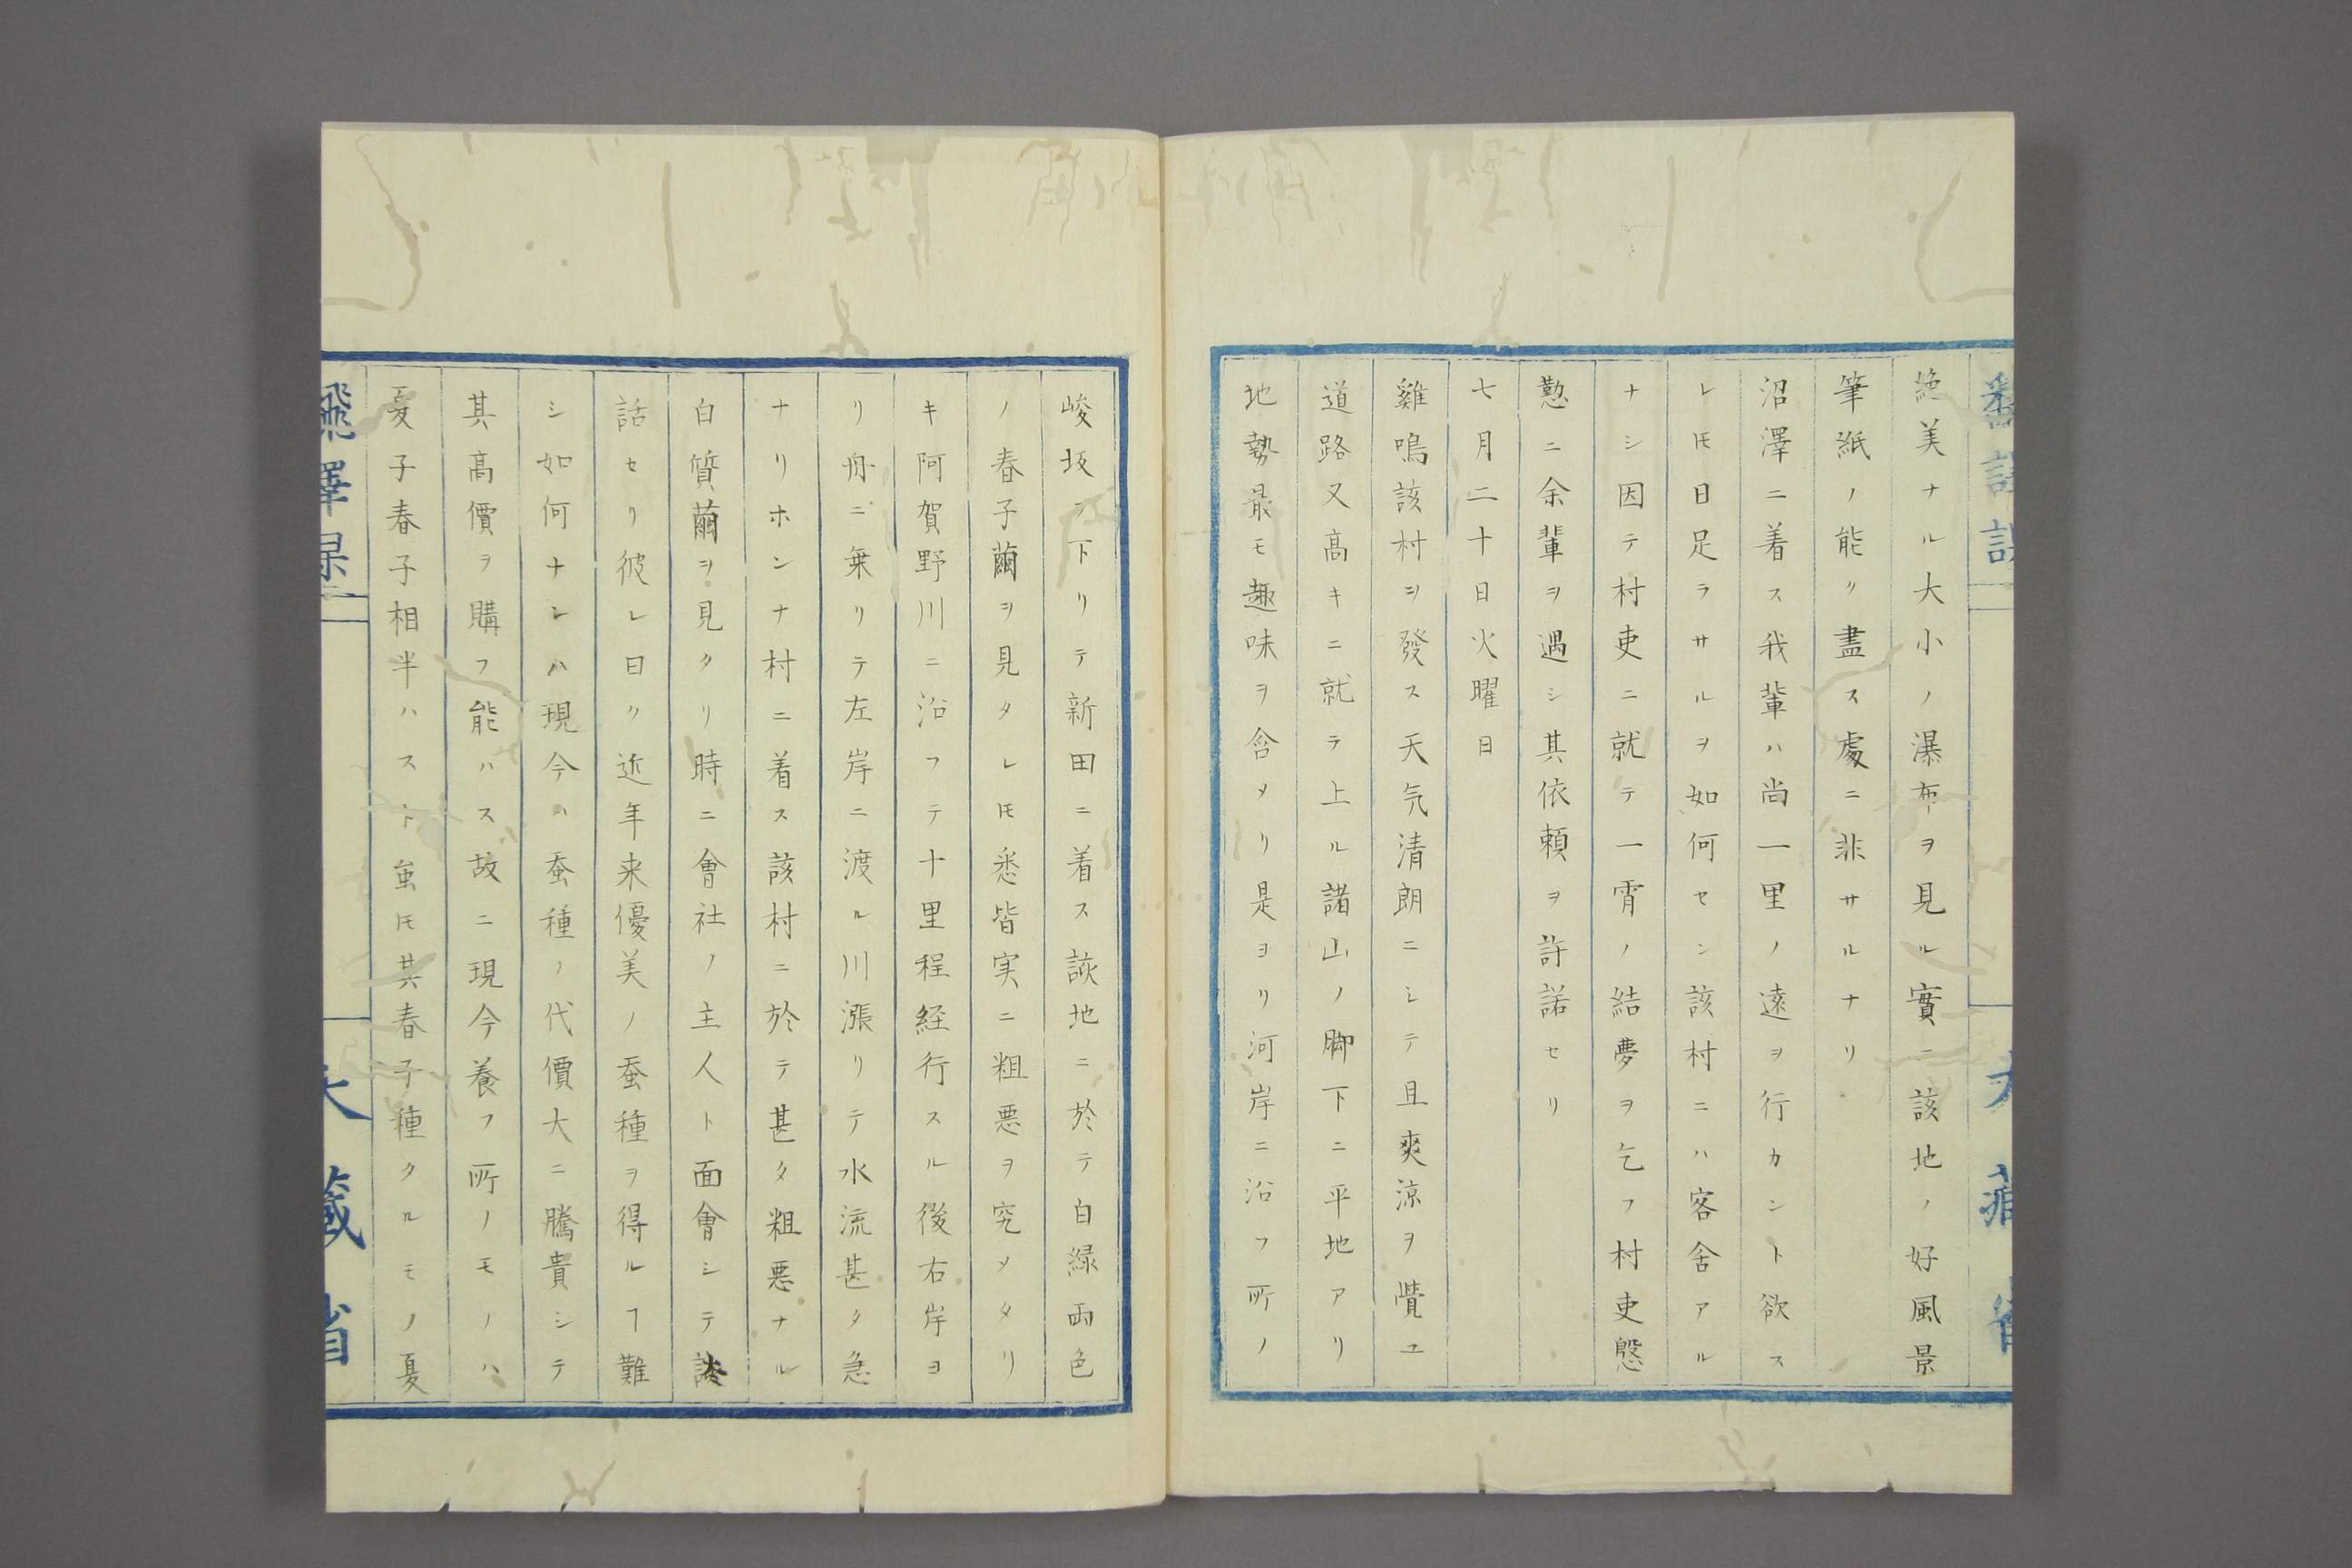 絶美ナル大小ノ瀑布ヲ見ル實ニ該地ノ好風景
筆紙ノ能ク盡ス處ニ非サルナリ
沼澤ニ着ス我輩ハ尚一里ノ遠ヲ行カント欲ス
レ𪜈日足ラサルヲ如何セン該村ニハ客舍アル
ナシ因テ村吏ニ就テ一宵ノ結夢ヲ乞フ村吏慇
懃ニ余輩ヲ遇シ其依頼ヲ許諾セリ
七月二十日火曜日
雞鳴該村ヲ發ス天氣清朗ニシテ且爽涼ヲ覺ユ
道路又高キニ就テ上ル諸山ノ脚下ニ平地アリ
地勢最モ趣味ヲ含メリ是ヨリ河岸ニ沿フ所ノ
峻坂ヲ下リテ新田ニ着ス該地ニ於テ白緑両色
ノ春子繭ヲ見タレ𪜈悉皆実ニ粗悪ヲ究メタリ
キ阿賀野川ニ沿フテ十里程経行スル後右岸ヨ
リ舟ニ乗リテ左岸ニ渡ル川漲リテ水流甚タ急
ナリホンナ村ニ着ス該村ニ於テ甚タ粗悪ナル
白質繭ヲ見タリ時ニ會社ノ主人ト面會シテ談
話セリ彼レ曰ク近年来優美ノ蚕種ヲ得ルヿ難
シ如何ナレハ現今ハ蚕種ノ代價大ニ騰貴シテ
其高價ヲ購フ能ハス故ニ現今養フ所ノモノハ
夏子春子相半ハスト虽𪜈其春子種タルモノ夏
飜譯課
大藏省